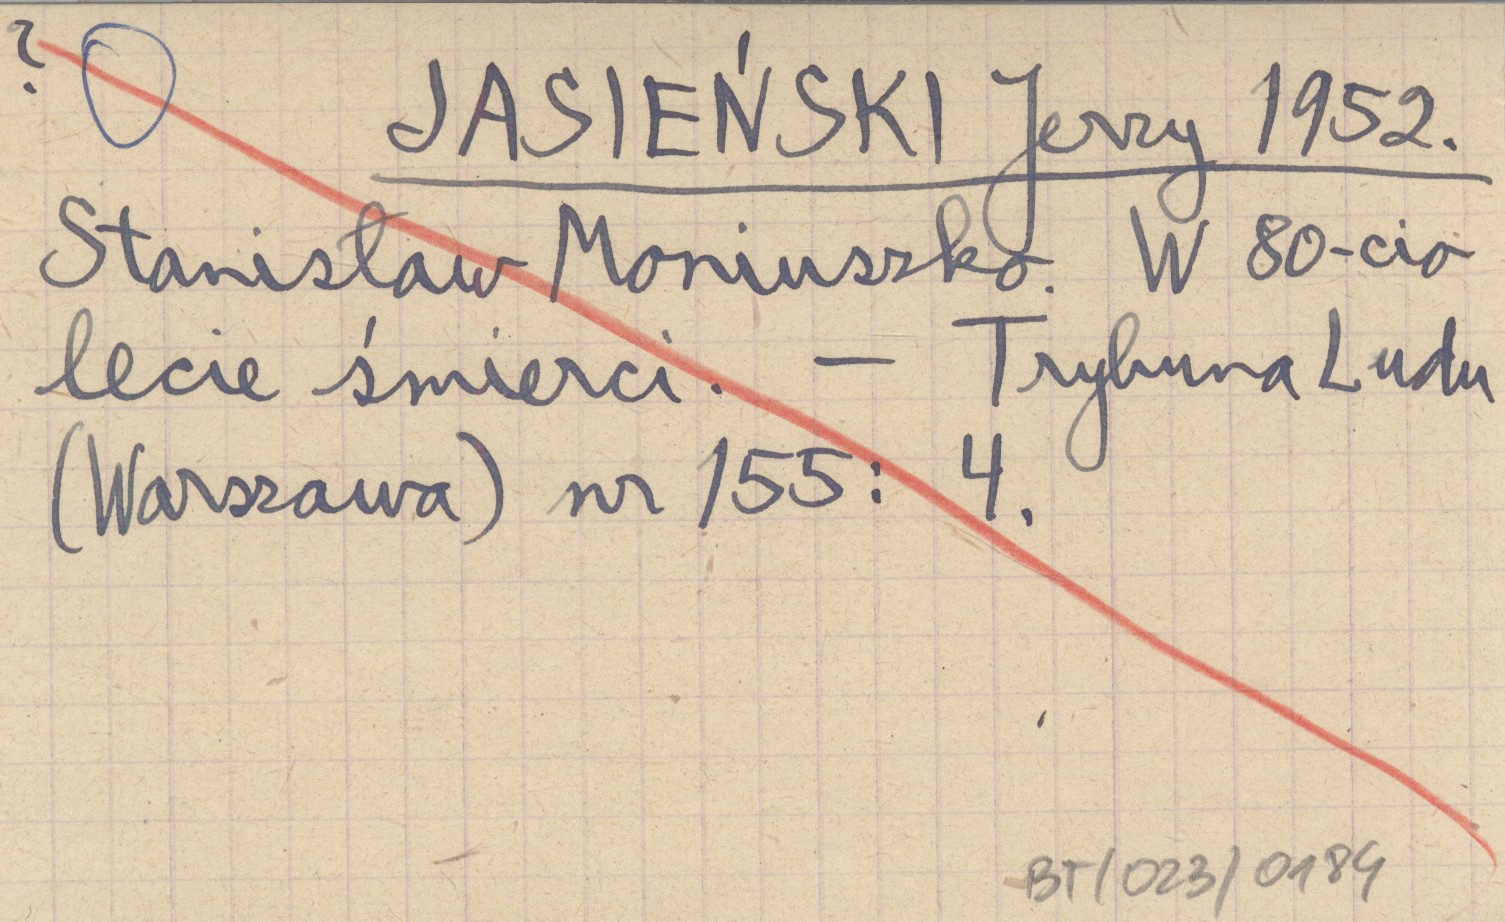 ?
JASIEŃSKI Jerzy 1952.
Stanisław Moniuszko. W 80-cio
lecie śmierci. — Trybuna Ludu
(Warszawa) nr 155: 4.
BT/023/0184